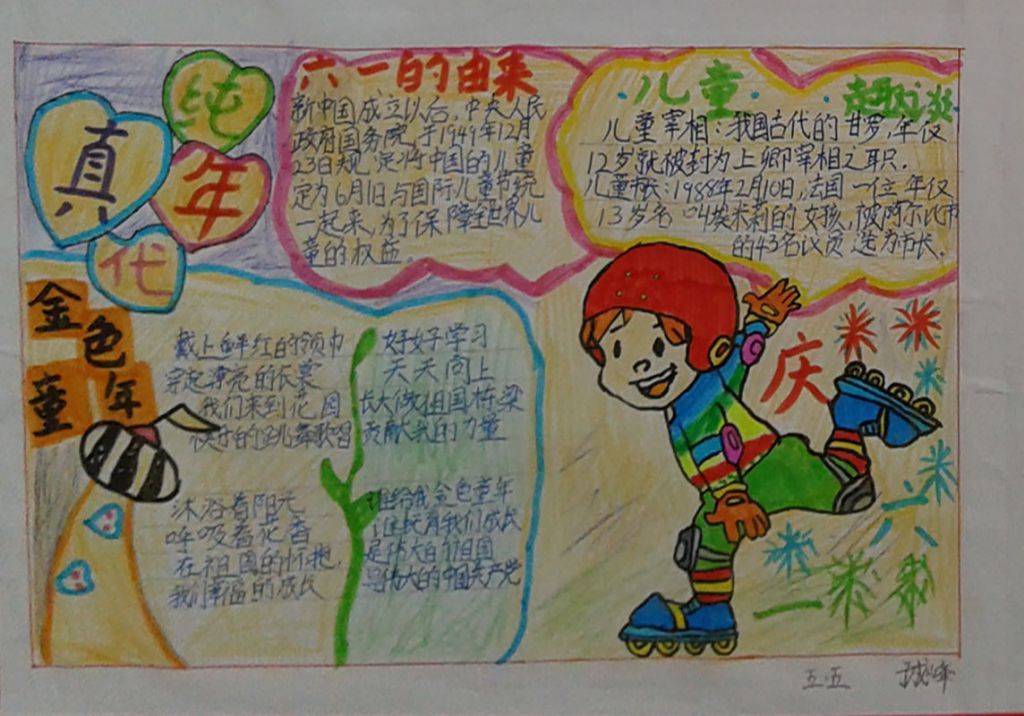 纯
真
年
代
六一的由来
新中国成立以后，中央人民
政府国务院，于1949年12月
23日规定将中国的儿童
定为6月1日与国际儿童节统
一起来，为了保障全世界儿
童的权益。
儿童
儿童宰相：我国古代的甘罗，年仅
12岁就被封为上卿宰相之职．
儿童市长：1988年2月10日，法国一位年仅
13岁名叫埃米莉的女孩，被阿尔比市
的43名议员选为市长．
金色
童年
戴上鲜红的领巾
穿起漂亮的长裳
我们来到花园
快乐的跳舞歌唱
好好学习
天天向上
长大做祖国栋梁
贡献我的力量
沐浴着阳光
呼吸着花香
在祖国的怀抱，
我们幸福的成长
谁给我金色童年
谁抚育我们成长
是伟大的祖国
是伟大的中国共产党
庆
六
一
五·五